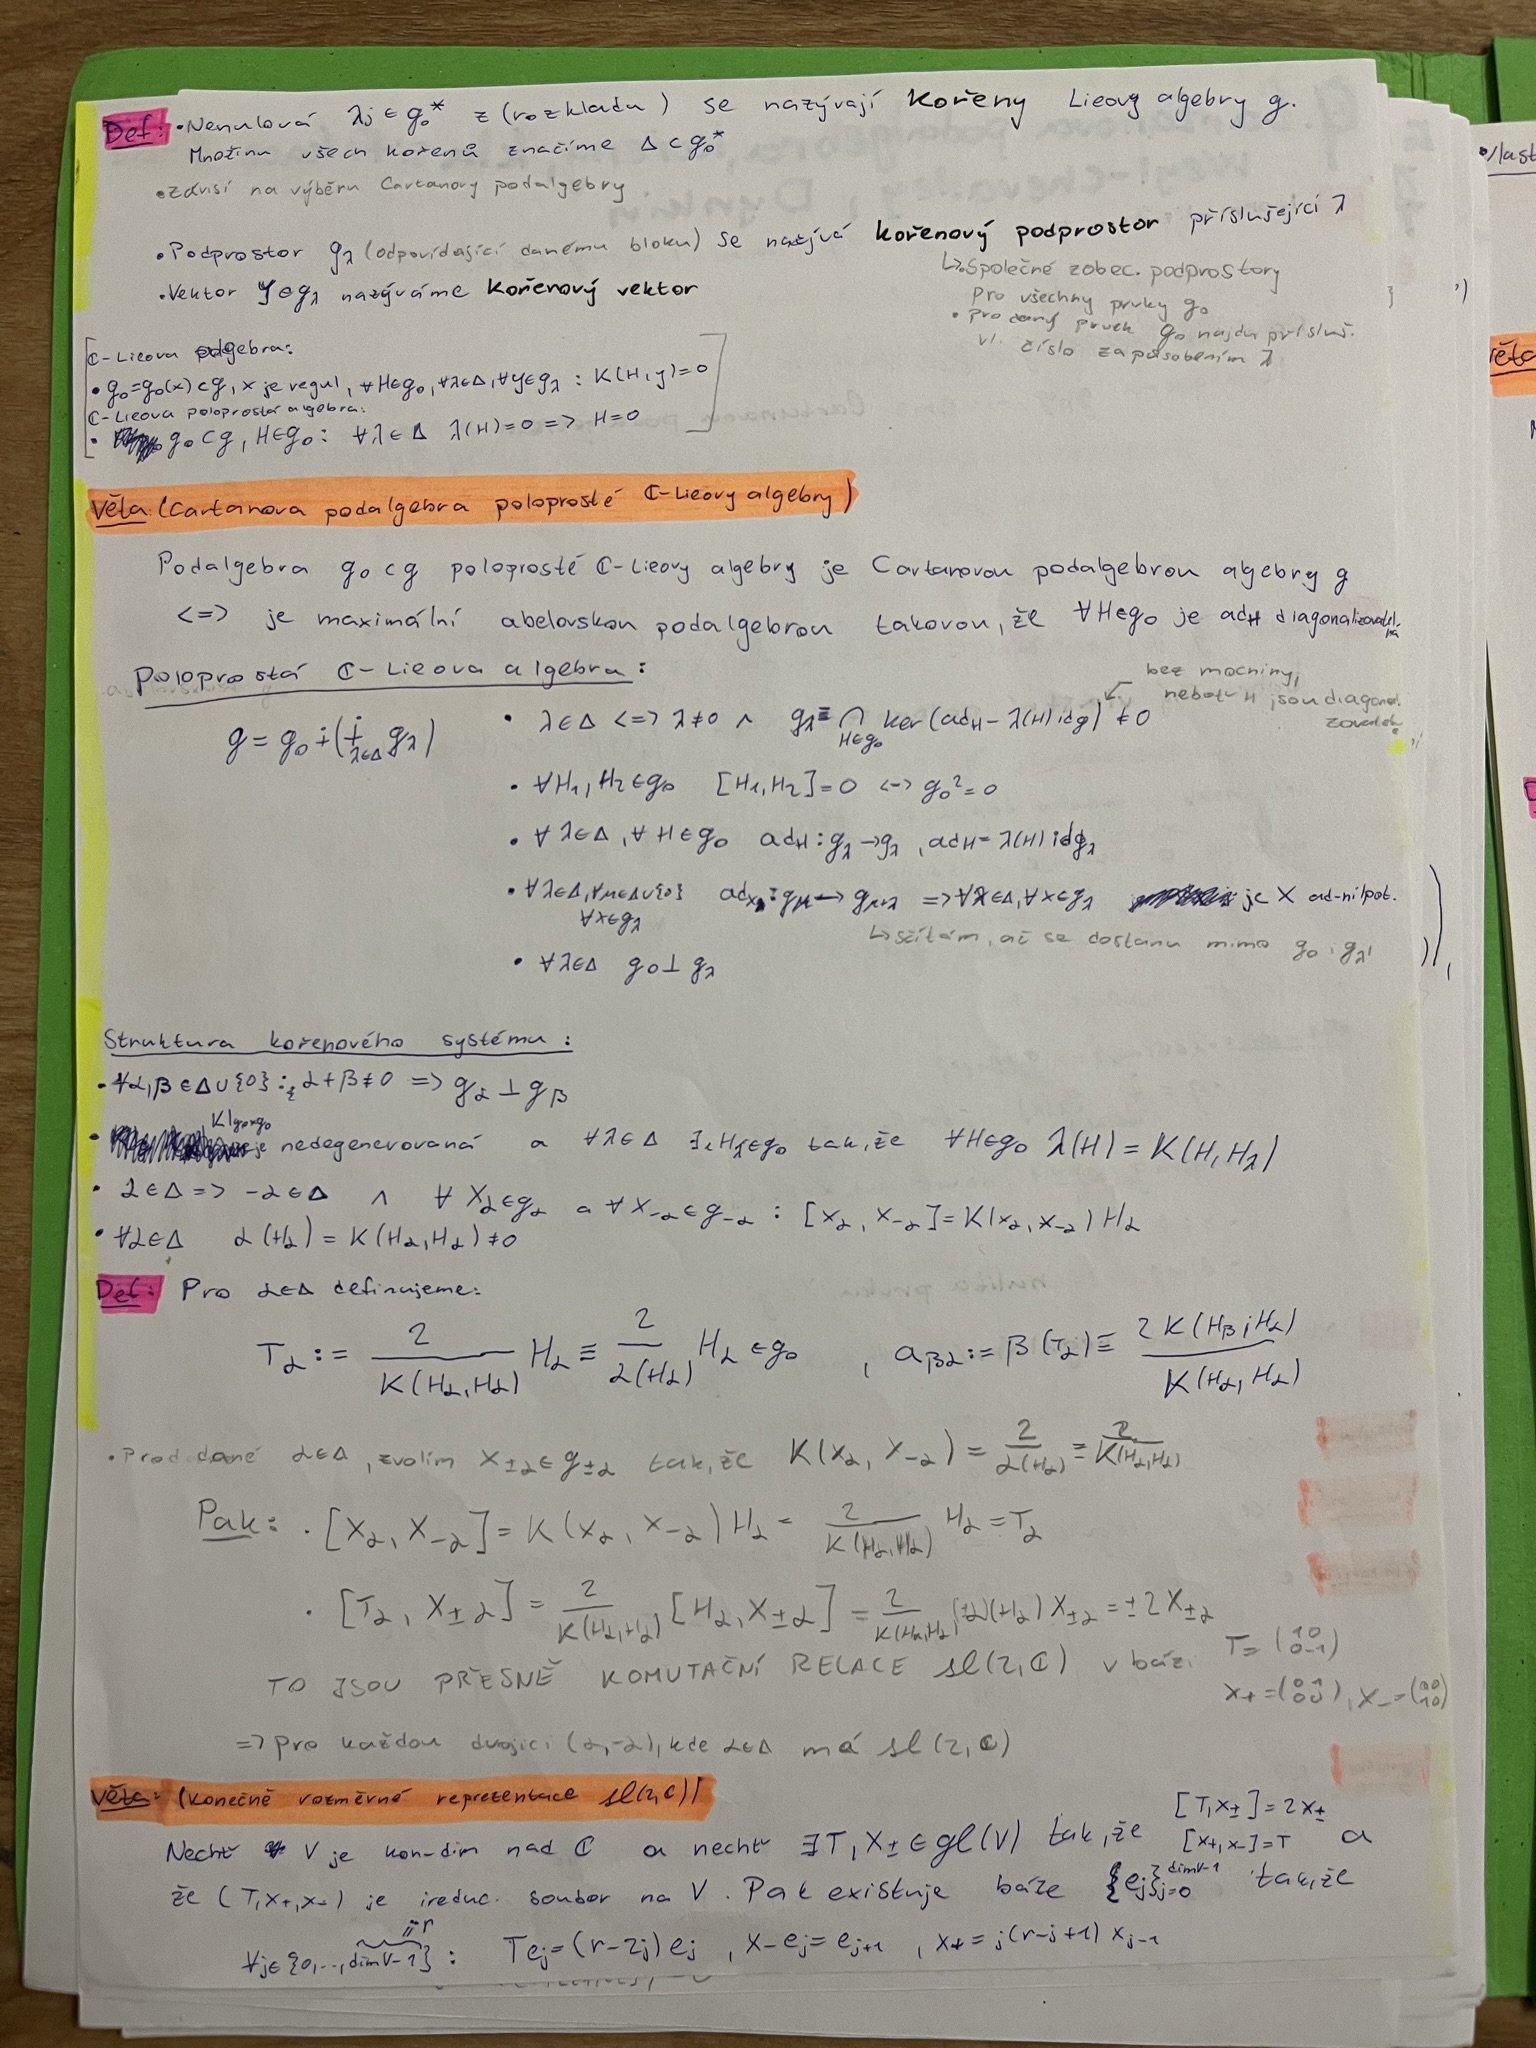 Def: • Nenulová λj ∈ g₀* z (rozkladu) se nazývají kořeny Lieovy algebry g.
Množinu všech kořenů značíme Δ ⊂ g₀*
• závisí na výběru Cartanovy podalgebry
• Podprostor gλ (odpovídající danému bloku) se nazývá kořenový podprostor příslušející λ
↳ • Společné zobec. podprostory
pro všechny prvky g₀
• pro daný prvek g₀ najdu přísluš.
vl. číslo zapůsobením λ
• Vektor y ∈ gλ nazýváme kořenový vektor
ℂ-Lieova algebra:
• g₀ = g₀(x) ⊂ g, x je regul, ∀H∈g₀, ∀λ∈Δ, ∀y∈gλ : K(H,y)=0
ℂ-Lieova poloprostá algebra:
• g₀ ⊂ g, H∈g₀: ∀λ∈Δ λ(H)=0 => H=0
Věta: (Cartanova podalgebra poloprosté ℂ-Lieovy algebry)
Podalgebra g₀ ⊂ g poloprosté ℂ-Lieovy algebry je Cartanovou podalgebrou algebry g
<=> je maximální abelovskou podalgebrou takovou, že ∀H∈g₀ je adH diagonalizovatelná
Poloprostá ℂ-Lieova algebra:
bez mocniny,
neboť H jsou diagonalizovatel.
g = g₀ ∔ (∔_{λ∈Δ} gλ)
• λ∈Δ <=> λ≠0 ∧ gλ ≡ ⋂_{H∈g₀} ker(adH − λ(H) idg) ≠ 0
• ∀H₁, H₂∈g₀ [H₁, H₂]=0 <-> g₀²=0
• ∀λ∈Δ, ∀H∈g₀ adH : gλ → gλ, adH = λ(H) idgλ
• ∀λ∈Δ, ∀μ∈Δ∪{0} adx : gμ → gμ+λ => ∀λ∈Δ, ∀x∈gλ je X ad-nilpot.
∀x∈gλ
↳ sčítám, až se dostanu mimo g₀, gλ
• ∀λ∈Δ g₀ ⊥ gλ
Struktura kořenového systému:
• ∀α,β∈Δ∪{0} : α+β≠0 => gα ⊥ gβ
• K|g₀×g₀ je nedegenerovaná a ∀λ∈Δ ∃₁Hλ∈g₀ tak, že ∀H∈g₀ λ(H) = K(H,Hλ)
• α∈Δ => −α∈Δ ∧ ∀Xα∈gα a ∀X−α∈g−α : [Xα, X−α] = K(Xα, X−α) Hα
• ∀α∈Δ α(Hα) = K(Hα,Hα) ≠ 0
Def: Pro α∈Δ definujeme:
Tα := 2/K(Hα,Hα) Hα ≡ 2/α(Hα) Hα ∈ g₀ , aβα := β(Tα) ≡ 2K(Hβ,Hα)/K(Hα,Hα)
• Prod dané α∈Δ, zvolím X±α ∈ g±α tak, že K(Xα, X−α) = 2/α(Hα) ≡ 2/K(Hα,Hα)
Pak: • [Xα, X−α] = K(Xα, X−α) Hα = 2/K(Hα,Hα) Hα = Tα
• [Tα, X±α] = 2/K(Hα,Hα) [Hα, X±α] = 2/K(Hα,Hα) (±α)(Hα) X±α = ±2X±α
TO JSOU PŘESNĚ KOMUTAČNÍ RELACE sl(2,ℂ) v bázi T = (1 0 / 0 −1)
X+ = (0 1 / 0 0), X− = (0 0 / 1 0)
=> pro každou dvojici (α,−α), kde α∈Δ má sl(2,ℂ)
Věta: (Konečně rozměrné reprezentace sl(2,ℂ))
Nechť V je kon-dim nad ℂ a nechť ∃T, X± ∈ gl(V) tak, že [T,X±]=2X± [X+,X−]=T a
že (T,X+,X−) je ireduc. soubor na V. Pak existuje báze {ej}_{j=0}^{dimV−1} tak, že
∀j∈{0,…,dimV−1} : Tej=(r−2j)ej , X−ej=ej+1 , X+ = j(r−j+1) xj−1
=: r